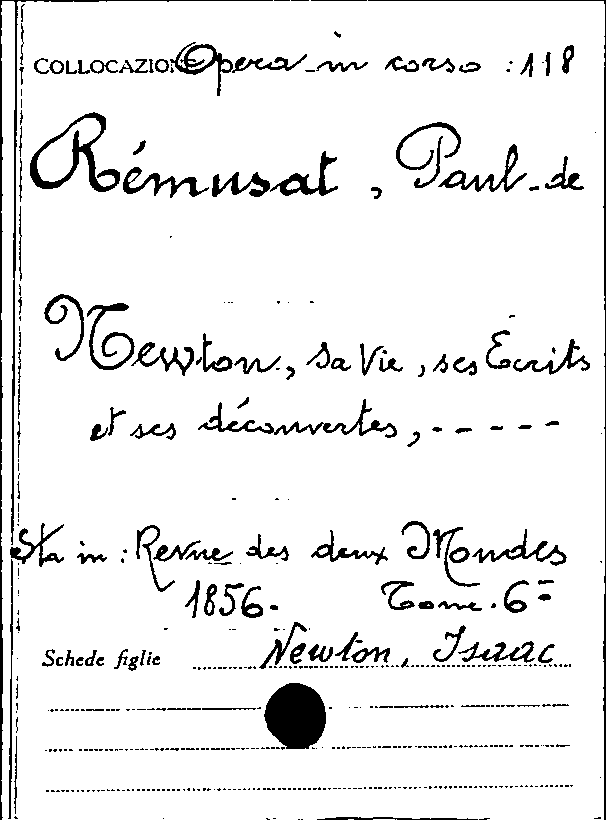 COLLOCAZIONE Opera in corso : 118
Rémusat, Paul-de
Newton, sa Vie, ses Écrits
et ses découvertes, - - - - -
Sta in : Revue des deux Mondes
1856. Tome. 6=
Schede figlie Newton, Isaac